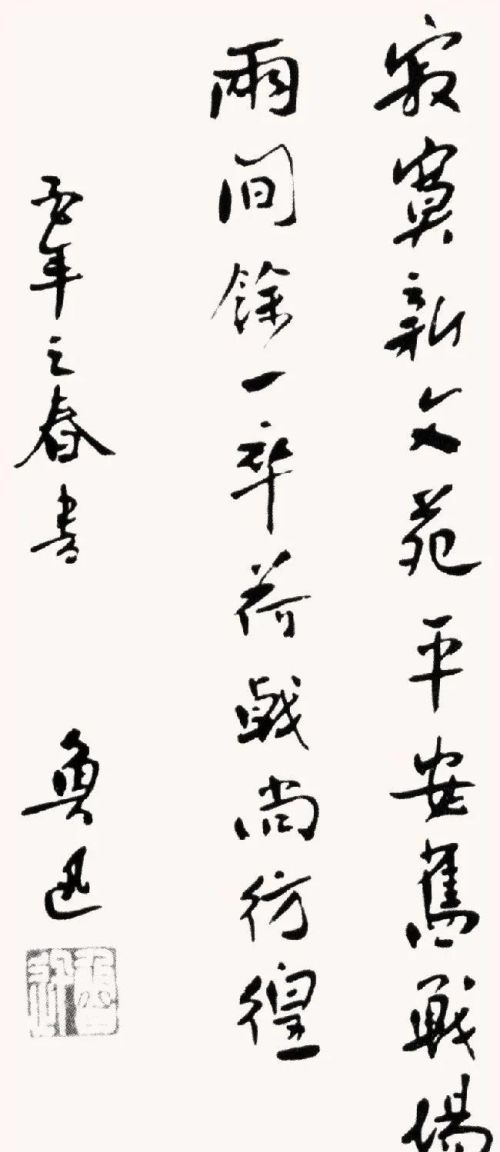 寂寞新文苑平安舊戰場
兩間餘一卒荷戟尚彷徨
酉年之春書 魯迅